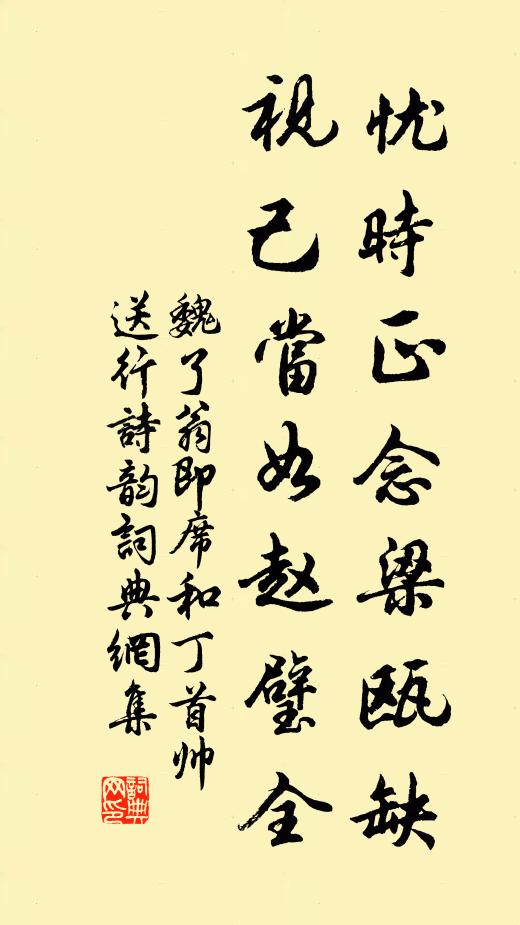 忧時正念梁瓯缺
視己當如赵璧全
魏了翁即席和丁首帅
送行詩韵詞典網集
詞典
网印